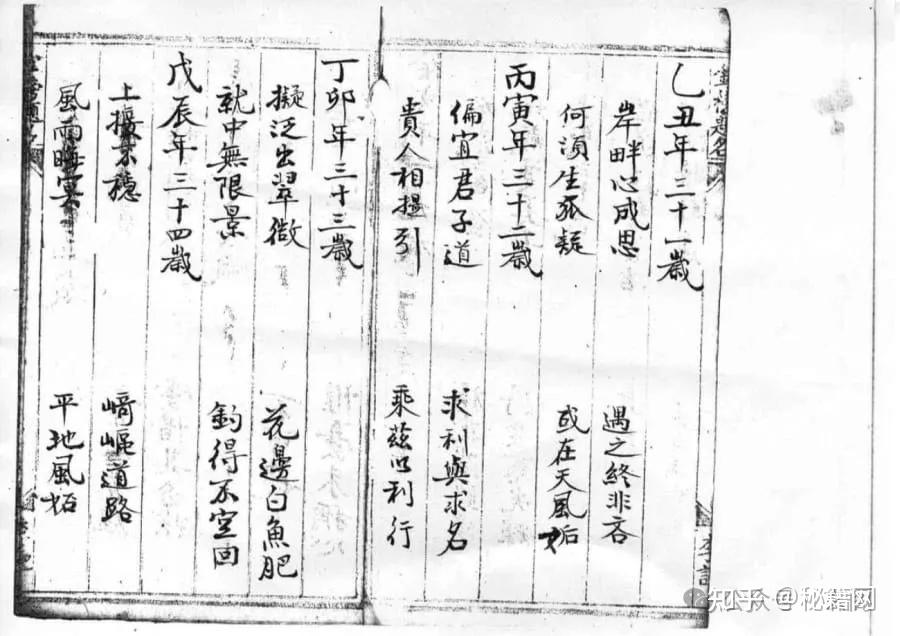 乙丑年三十一歲
岸畔心成思 遇之終非吝
何須生狐疑 或在天風姤
丙寅年三十二歲
偏宜君子道 求利與求名
貴人相提引 乘茲以利行
丁卯年三十三歲
擬泛出翠微 花邊白魚肥
就中無限景 釣得不空回
戊辰年三十四歲
上不穩 崎嶇道路
風雨晦冥 平地風
知乎 @秘籍网